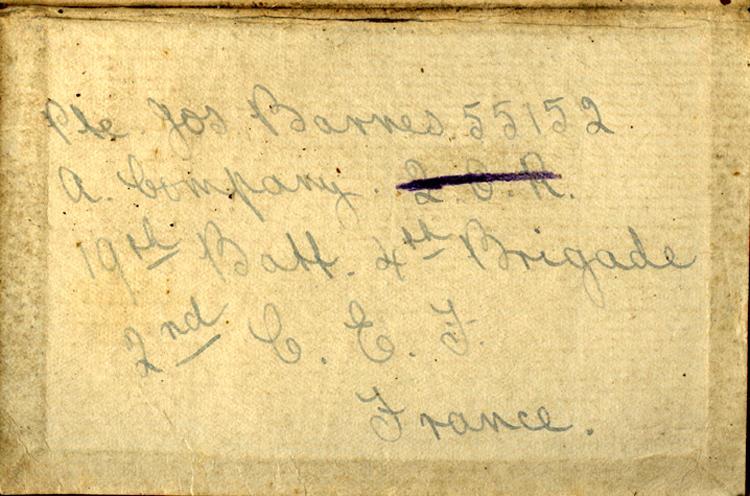 Pte Jos Barnes 55152
A. Company. Q.O.R.
19th Batt. 4th Brigade
2nd C. E. F.
France.